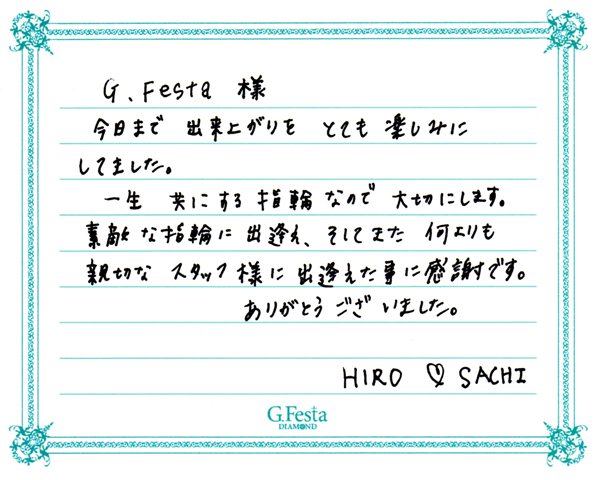 G. Festa 様
今日まで 出来上がりを とても 楽しみに
してました。
一生 共にする 指輪 なので 大切にします。
素敵な指輪に 出逢え、そしてまた 何よりも
親切な スタッフ様に 出逢えた事に感謝です。
ありがとう ございました。
HIRO ♡ SACHI
G.Festa
DIAMOND